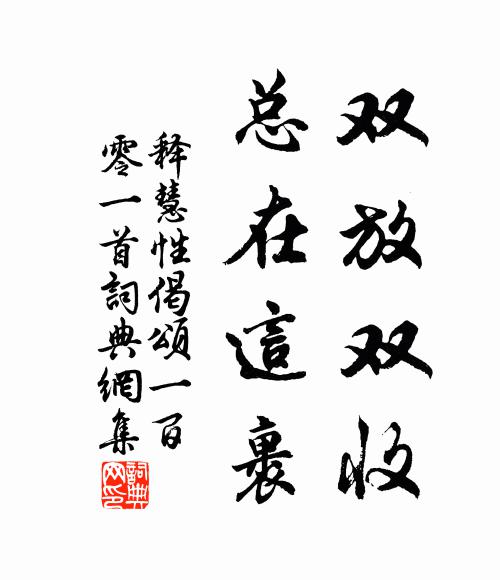 双放双收
总在這裏
释慧性偈頌一百
零一首詞典網集
詞典
网印